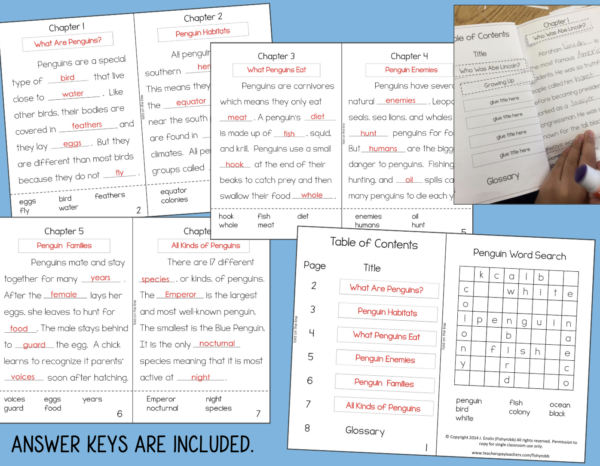 Chapter 1
What Are Penguins?
Penguins are a special
type of bird that live
close to water. Like
other birds, their bodies are
covered in feathers and
they lay eggs. But they
are different than most birds
because they do not fly.
eggs bird feathers
fly water
2
Chapter 2
Penguin Habitats
All pengui
southern
This means they
the equator
near the sou
are found in
climates. All pe
groups called
equator
colonies
Chapter 3
What Penguins Eat
Penguins are carnivores
which means they only eat
meat. A penguin's diet
is made up of fish, squid,
and krill. Penguins use a small
hook at the end of their
beaks to catch prey and then
swallow their food whole.
hook fish diet
whole meat
Chapter 4
Penguin Enemies
Penguins have sever
natural enemies. Leopa
seals, sea lions, and whales
hunt penguins for fo
But humans are the bigg
danger to penguins. Fishing
hunting, and oil spills ca
many penguins to die each y
enemies oil
humans hunt
5
le of Contents
Title
Who Was Abe Lincoln?
Growing Up
glue title here
glue title here
glue title here
glue title here
Glossary
Chapter 1
Who Was Abe Lincoln?
Abraham
Chapter 5
Penguin Families
Penguins mate and stay
together for many years.
After the female lays her
eggs, she leaves to hunt for
food. The male stays behind
to guard the egg. A chick
learns to recognize it parents'
voices soon after hatching.
voices eggs years
guard food
6
Chapte
All Kinds of Penguins
There are 17 different
species, or kinds, of penguins.
The Emperor is the largest
and most well-known penguin.
The smallest is the Blue Penguin.
It is the only nocturnal
species meaning that it is most
active at night.
Emperor night
nocturnal species
7
Table of Contents
Page Title
2 What Are Penguins?
3 Penguin Habitats
4 What Penguins Eat
5 Penguin Enemies
6 Penguin Families
7 All Kinds of Penguins
8 Glossary
1
fold on the line
Penguin Word Search
k c a l b
c w h i t e
o o
l p e n g u i n
o b a
n f i s h e
y r c
d o
penguin fish ocean
bird colony black
white
© Copyright 2014 J. Gnolis (Fishyrobb) All rights reserved. Permission to
copy for single classroom use only.
www.teacherspayteachers.com/fishyrobb
ANSWER KEYS ARE INCLUDED.